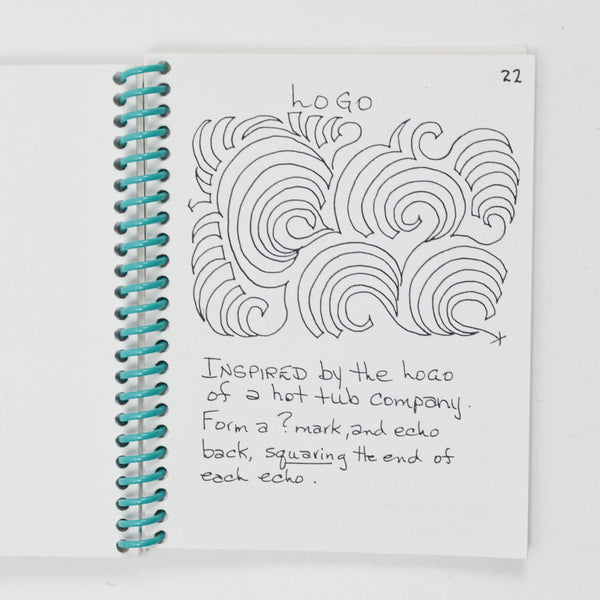 22
LOGO
INSPIRED by the LOGO
of a hot tub company.
Form a ? mark, and echo
back, squaring the end of
each echo.